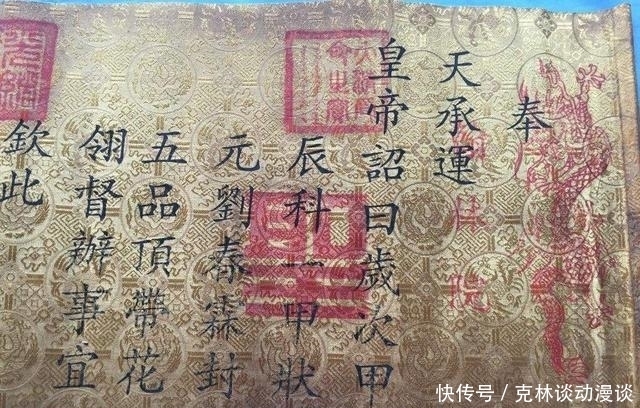 奉
天承運
皇帝詔曰歲次甲
辰科一甲狀
元劉春霖封
五品頂帶花
翎督辦事宜
欽此
翰林院
快传号 / 克林谈动漫谈